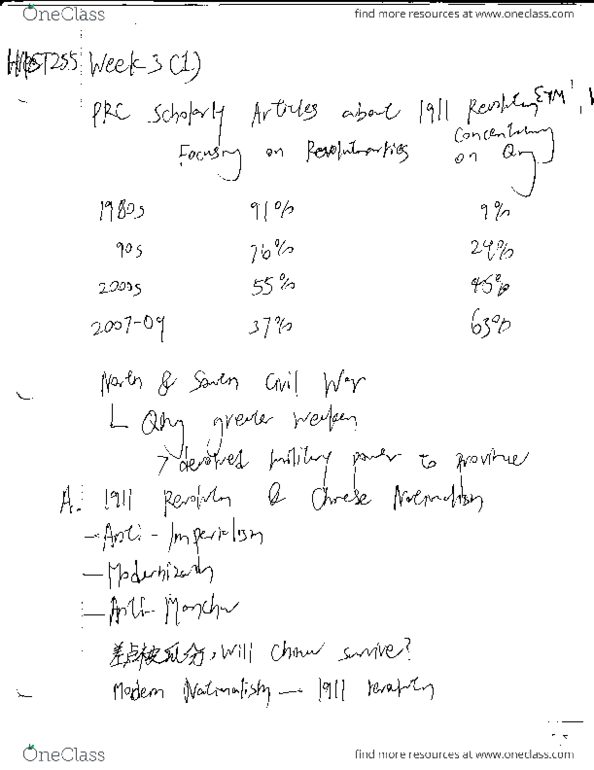 OneClass
find more resources at www.oneclass.com
HIST255 Week 3 (1)
PRC Scholarly Articles about 1911 Revolution
Focusing on Revolutionaries Concentrating on Qing
1980s 91% 9%
90s 76% 24%
2000s 55% 45%
2007-09 37% 63%
North & South Civil War
Qing greater weaken
> devolved military power to province
A. 1911 Revolution & Chinese Nationalism
- Anti-Imperialism
- Modernization
- Anti-Manchu
差点被瓜分, will China survive?
Modern Nationalism — 1911 revolution
OneClass
find more resources at www.oneclass.com